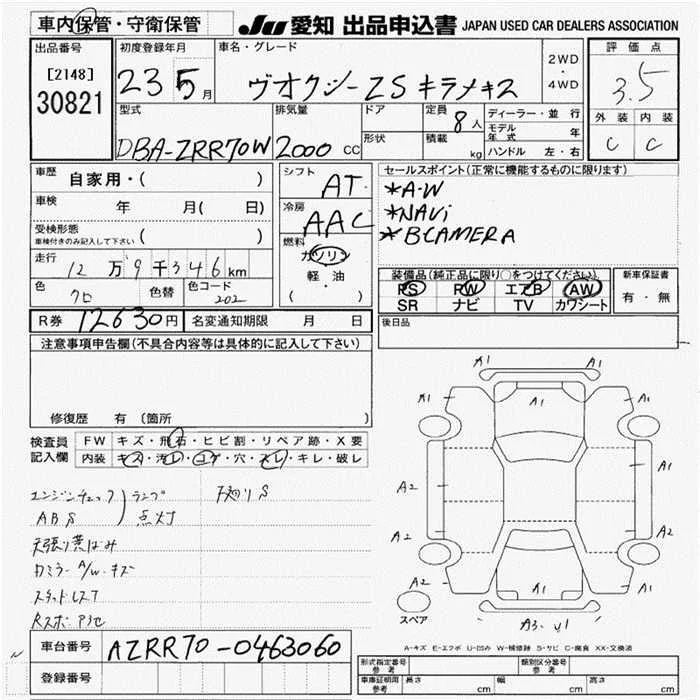 車内保管・守衛保管
JU 愛知 出品申込書 JAPAN USED CAR DEALERS ASSOCIATION
出品番号
[2148]
30821
初度登録年月
23 5 月
車名・グレード
ヴオクシーZS キラメキ2
2WD
・
4WD
評価点
3.5
外装 内装
C C
型式
DBA-ZRR70W
排気量
2000 CC
ドア
形状
定員
8 人
積載
kg
ディーラー・並行
モデル年式 年
ハンドル 左・右
車歴
自家用・( )
車検
年 月( 日)
受検形態
車検付きのみ記入して下さい ( )
走行
12万9千346km
色
クロ
色替
色コード
202
シフト
AT
冷房
AAC
燃料
ガソリン
軽・油
( )
セールスポイント(正常に機能するものに限ります)
*A・W
*NAVi
*BCAMERA
装備品(純正品に限り○をつけてください。)
PS PW エアB AW
SR ナビ TV カワシート
新車保証書
有・無
R券 12630円
名変通知期限 月 日
後日品
注意事項申告欄(不具合内容等は具体的に記入して下さい)
修復歴 有 〔箇所 〕
検査員
記入欄
FW キズ・飛石・ヒビ割・リペア跡・X要
内装 キズ・汚レ・コゲ・穴・スレ・キレ・破レ
エンジンチェック
ABS
ランプ
点灯
天張り黄ばみ
A/W・キズ
A1 A1
A1 A1 A1
A2 A1
A2
A2 A1 A2
A3・U1
スペア
A-キズ E-エクボ U-凹み W-補修跡 S-サビ C-腐食 XX-交換済
車台番号
AZRR70-0463060
登録番号
形式指定番号
参考
類別区分番号
参考
車庫証明用
参考
長さ cm 幅 cm 高さ cm